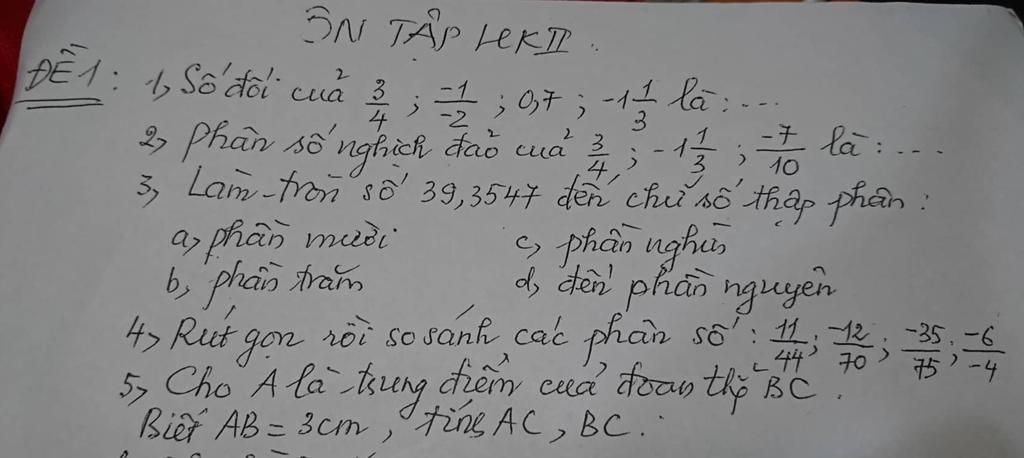 ÔN TẬP HKII.
ĐỀ 1: 1, Số đối của 3/4 ; -1/-2 ; 0,7 ; -1 1/3 là : ...
2, Phân số nghịch đảo của 3/4 ; -1 1/3 ; -7/10 là : ...
3, Làm tròn số 39,3547 đến chữ số thập phân :
a, phần mười c, phần nghìn
b, phần trăm d, đến phần nguyên
4, Rút gọn rồi so sánh các phân số : 11/44 ; -12/70 ; -35/75 ; -6/-4
5, Cho A là trung điểm của đoạn thg BC.
Biết AB = 3cm, tính AC, BC.